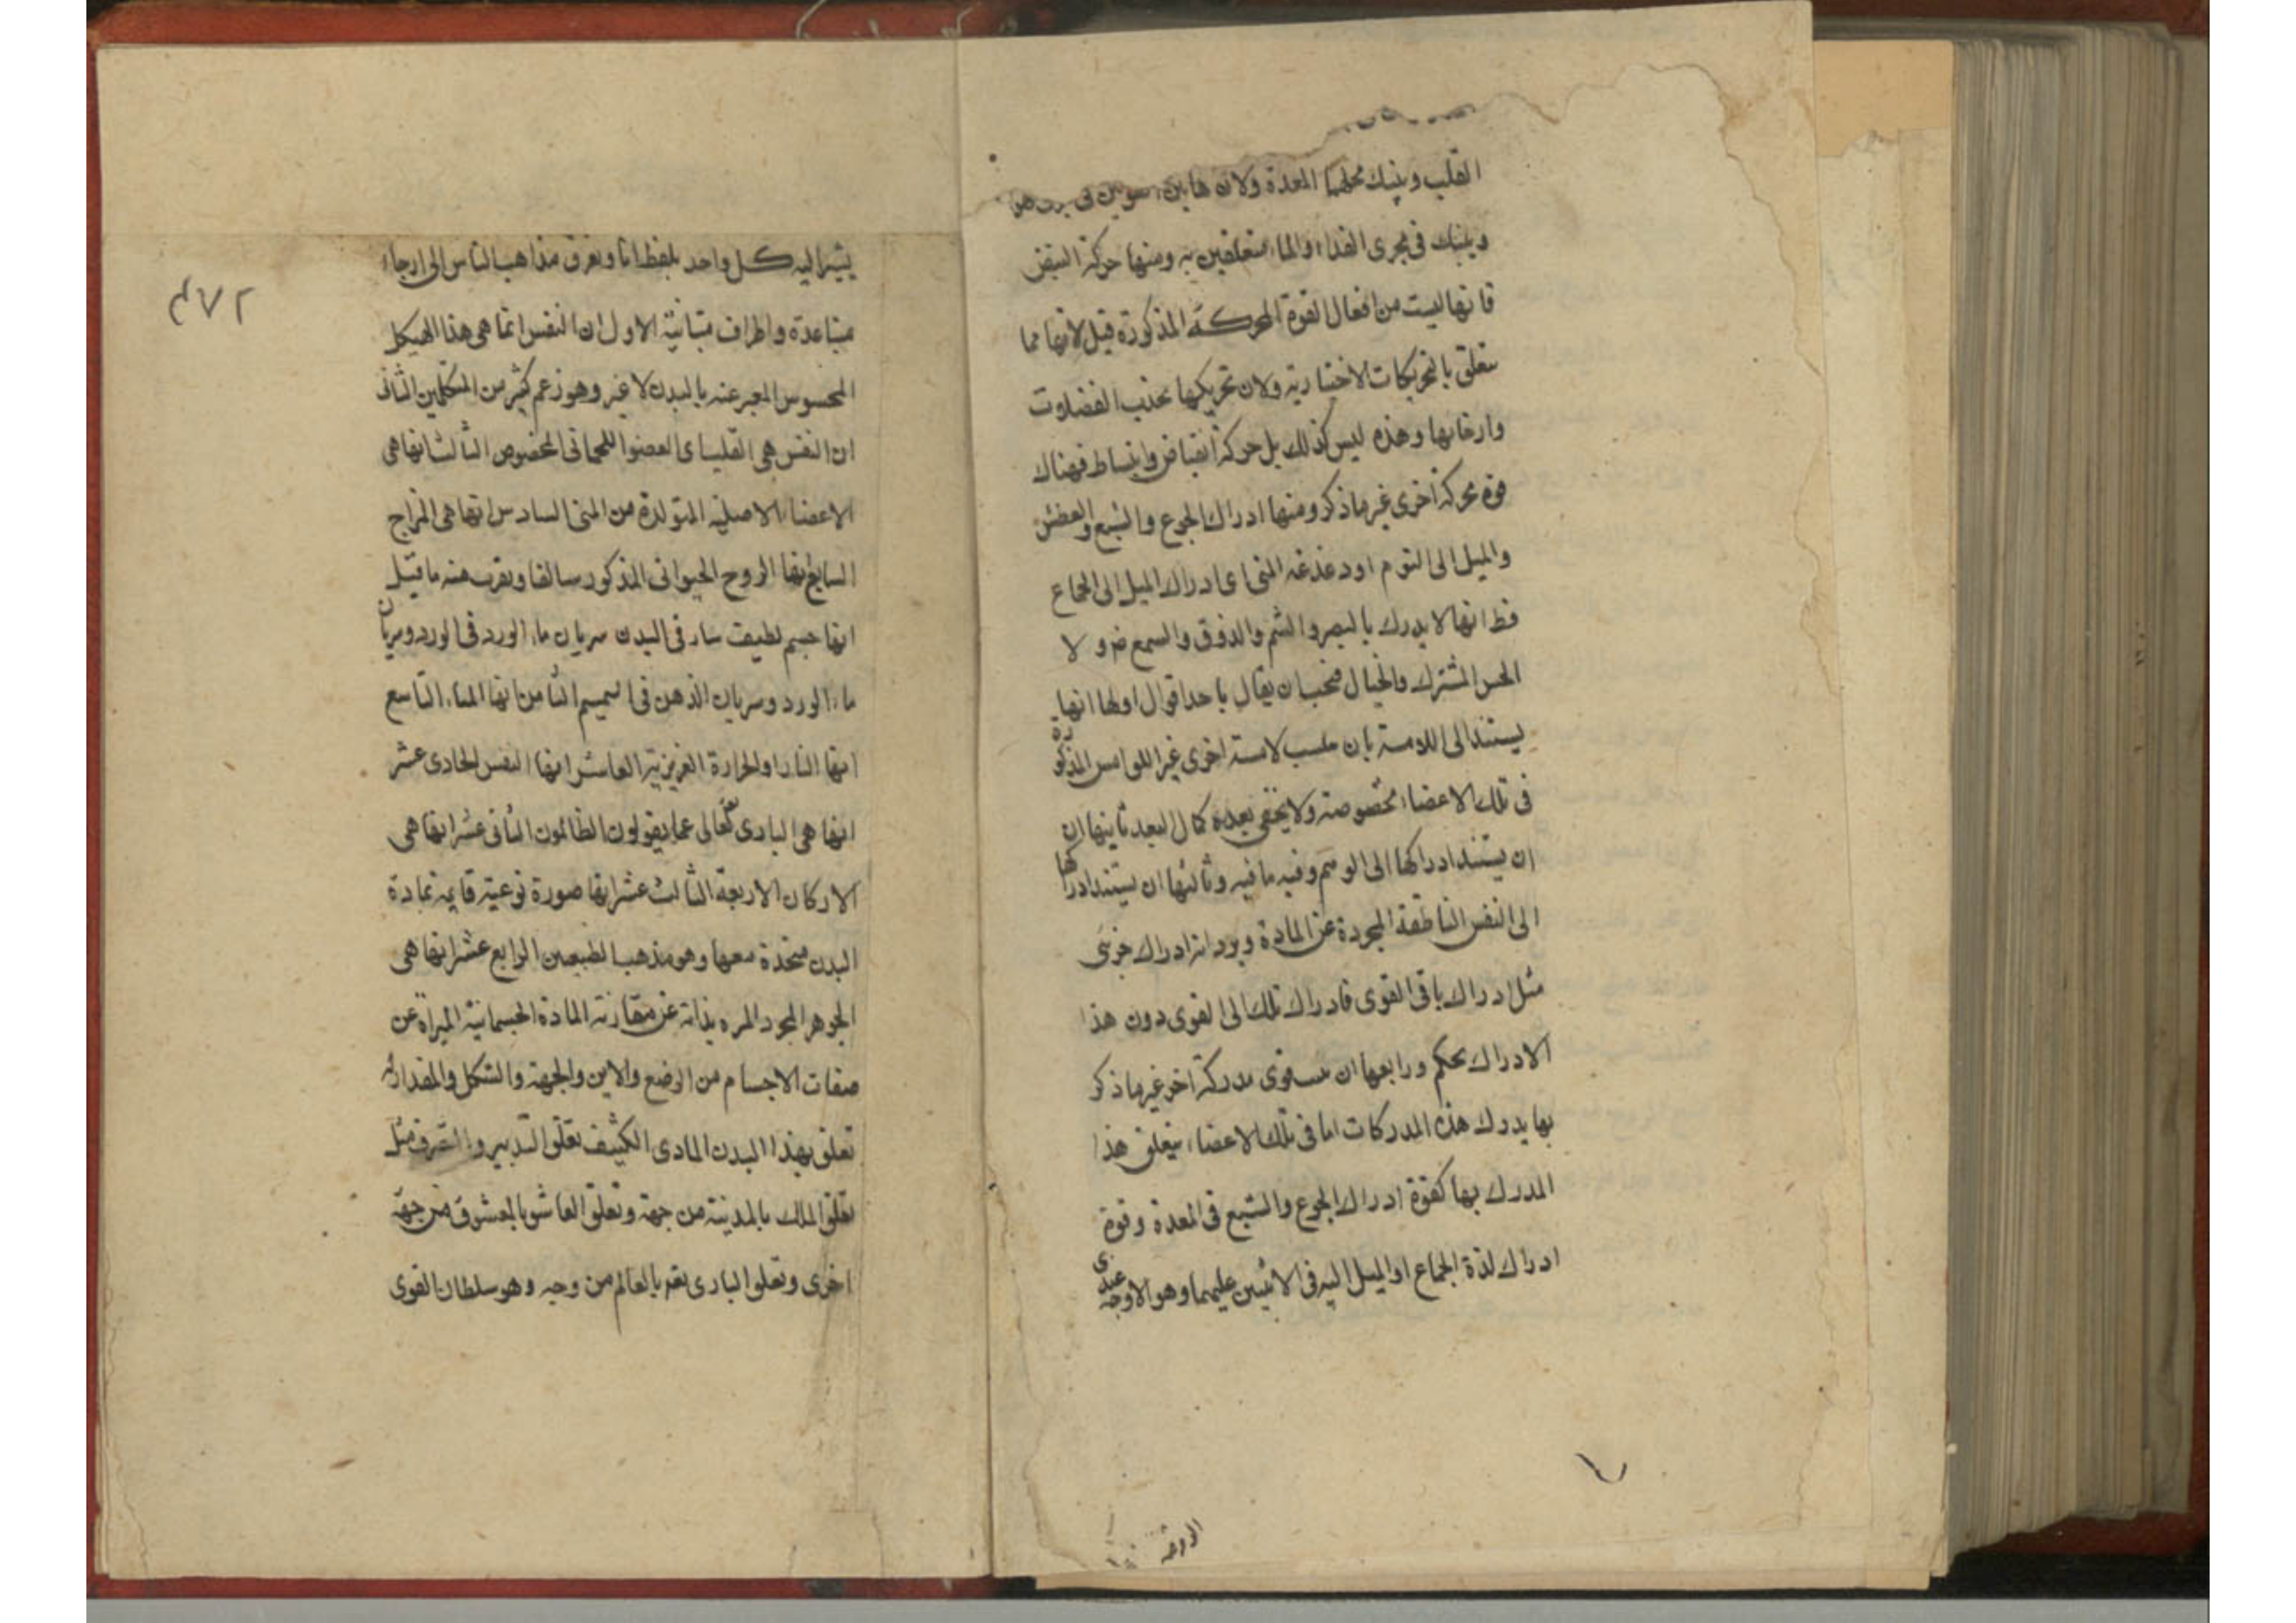 القلب وينبك محلهما المعدة ولان هاتين
وينبك فى مجرى الغذاء والماء متعلقين به ومنها حركة النبض
فانها ليست من افعال القوة المحركة المذكورة قيل لانها مما
يتعلق بالتحريكات الاختيارية ولان تحريكها بجذب العضلات
وارخائها وهذه ليس كذلك بل حركة انقباض وانبساط فهناك
قوة محركة اخرى غير ما ذكر ومنها ادراك الجوع والشبع والعطش
والميل الى النوم او دغدغة المنى اى ادراك الميل الى الجماع
فظ انها لا يدرك بالبصر والشم والذوق والسمع ض ولا
الحس المشترك والخيال فيجب ان يقال باحد اقوال اولها انها
يستند الى اللامسة بان لامسة اخرى غير اللوامس المذكورة
فى تلك الاعضاء مخصوصة ولا يخفى بعده كمال البعد ثانيها ان
ان يستند ادراكها الى الوهم وفيه ما فيه وثالثها ان يستند ادراكها
الى النفس الناطقة المجردة عن المادة ويرد انه ادراك جزئى
مثل ادراك باقى القوى فادراك تلك الى القوى دون هذا
الادراك تحكم ورابعها ان قوى مدركة اخر غير ما ذكر
بها يدرك هذه المدركات اما فى تلك الاعضاء يتعلق هذا
المدرك بها كقوة ادراك الجوع والشبع فى المعدة وقوة
ادراك لذة الجماع او الميل اليه فى الانثيين عليهما وهو الاوجه عندى
يشير اليه كل واحد بلفظ انا وتفرق مذاهب الناس الى ارجاء
٢٧٣
متباعدة واطراف متباينة الاول ان النفس انما هى هذا الهيكل
المحسوس المعبر عنه بالبدن لا غير وهو زعم كثير من المتكلمين الثانى
ان النفس هى القلب اى العضو اللحمانى المخصوص الثالث انها هى
الاعضاء الاصلية المتولدة من المنى السادس انها هى المزاج
السابع انها الروح الحيوانى المذكور سالفا ويقرب منه ما قيل
انها جسم لطيف سار فى البدن سريان ماء الورد فى الورد وسريان
ماء الورد وسريان الدهن فى السمسم الثامن انها الماء التاسع
انها النار والحرارة الغريزية العاشر انها النفس الحادى عشر
انها هى البارى تعالى عما يقولون الظالمون الثانى عشر انها هى
الاركان الاربعة الثالث عشر انها صورة نوعية قايمة بمادة
البدن متحدة معها وهو مذهب الطبيعين الرابع عشر انها هى
الجوهر المجرد المبره بذاته عن مقارنة المادة الجسمانية المبراة عن
صفات الاجسام من الوضع والاين والجهة والشكل والمقدار له
تعلق بهذا البدن المادى الكثيف تعلق التدبير والتصرف مثل
تعلق الملك بالمدينة من جهة وتعلق العاشق بالمعشوق من جهة
اخرى وتعلق البارى تعم بالعالم من وجه وهو سلطان القوى